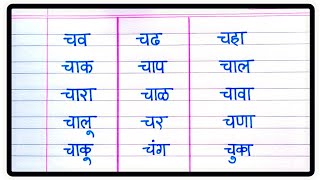 चव चढ चहा
चाक चाप चाल
चारा चाळ चावा
चालू चर चणा
चाकू चंग चुका